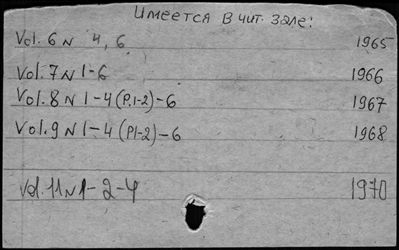 Имеется в чит. зале:
Vol. 6 N 4, 6 1965
Vol. 7 N 1-6 1966
Vol. 8 N 1-4 (P.1-2)-6 1967
Vol. 9 N 1-4 (P1-2)-6 1968
Vol. 11 N 1-2-4 1970